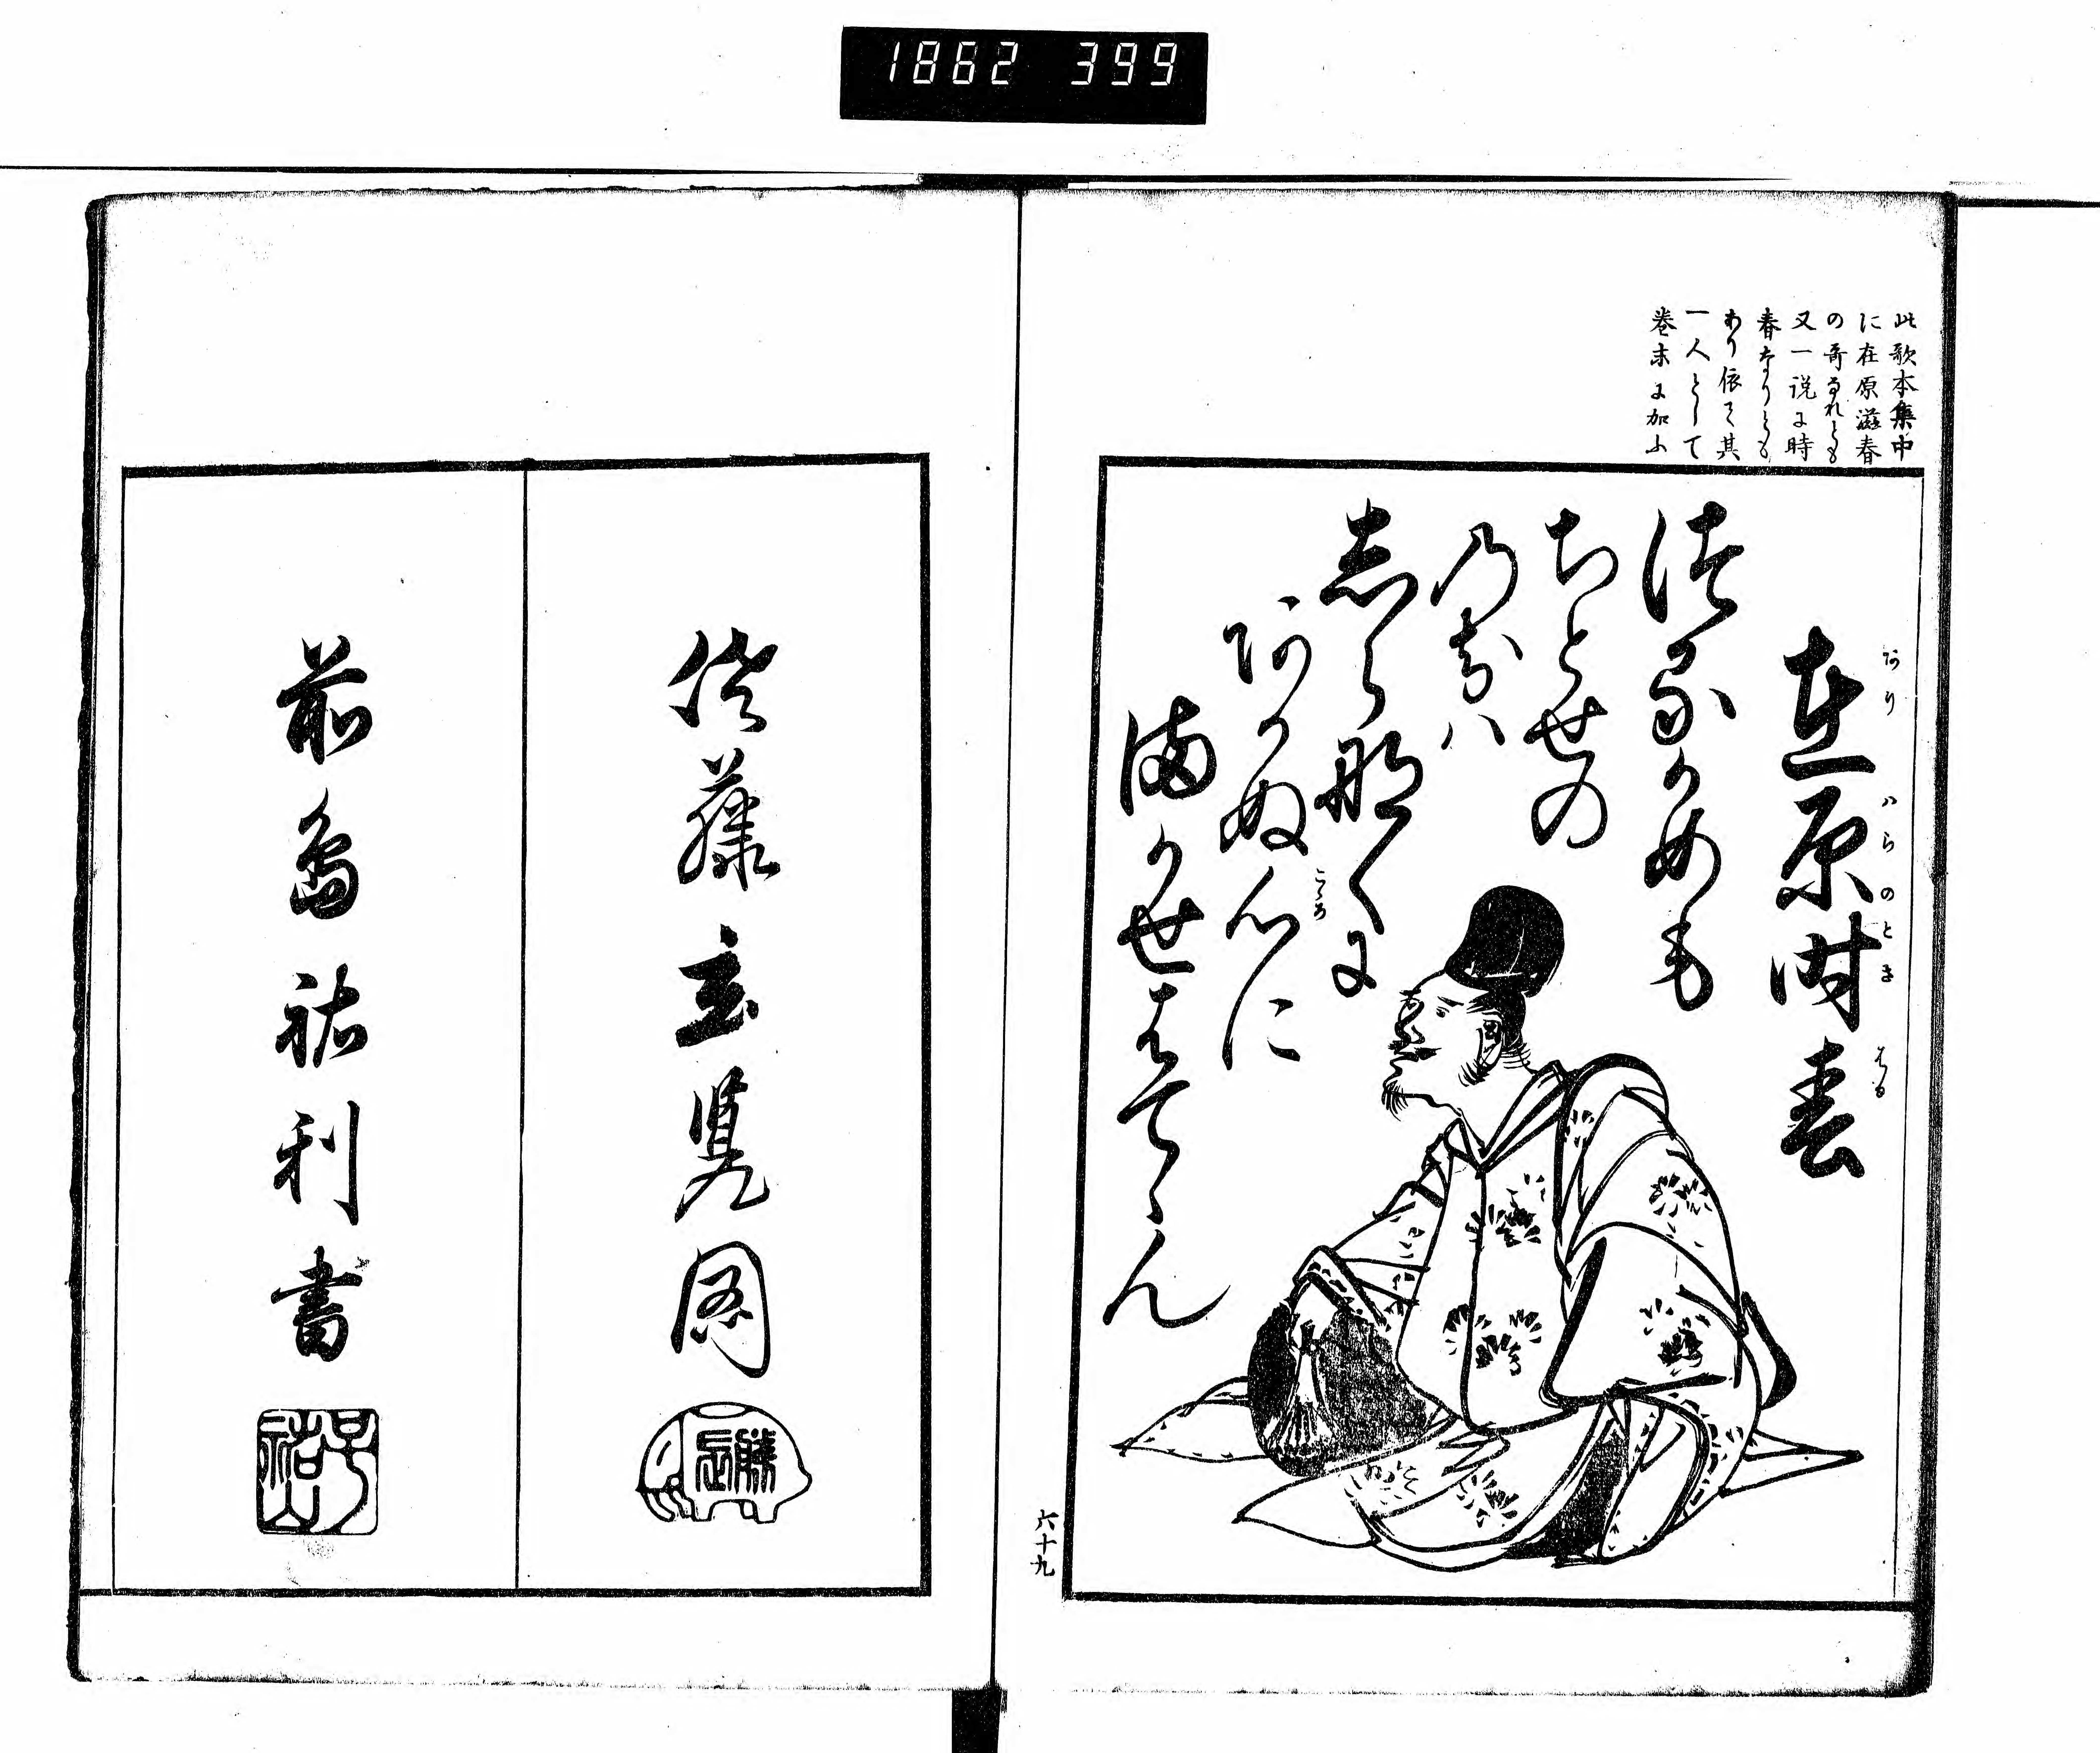 1862 399
此歌本集中
に在原滋春
の哥なれとも
又一説に時
春なりとも
あり依て其
一人として
巻末に加ふ
在原時春
ありはらのときはる
つるかめも
ちとせの
のちハ
しらなくに
あかぬ心に
こゝろ
まかせはてゝん
六十九
藤玄覧図
前島祐利書